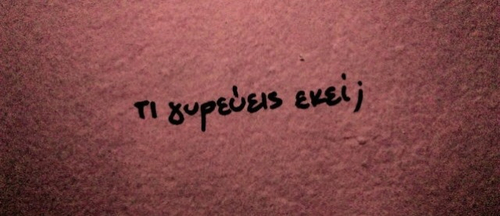 τι γυρεύεις εκεί;